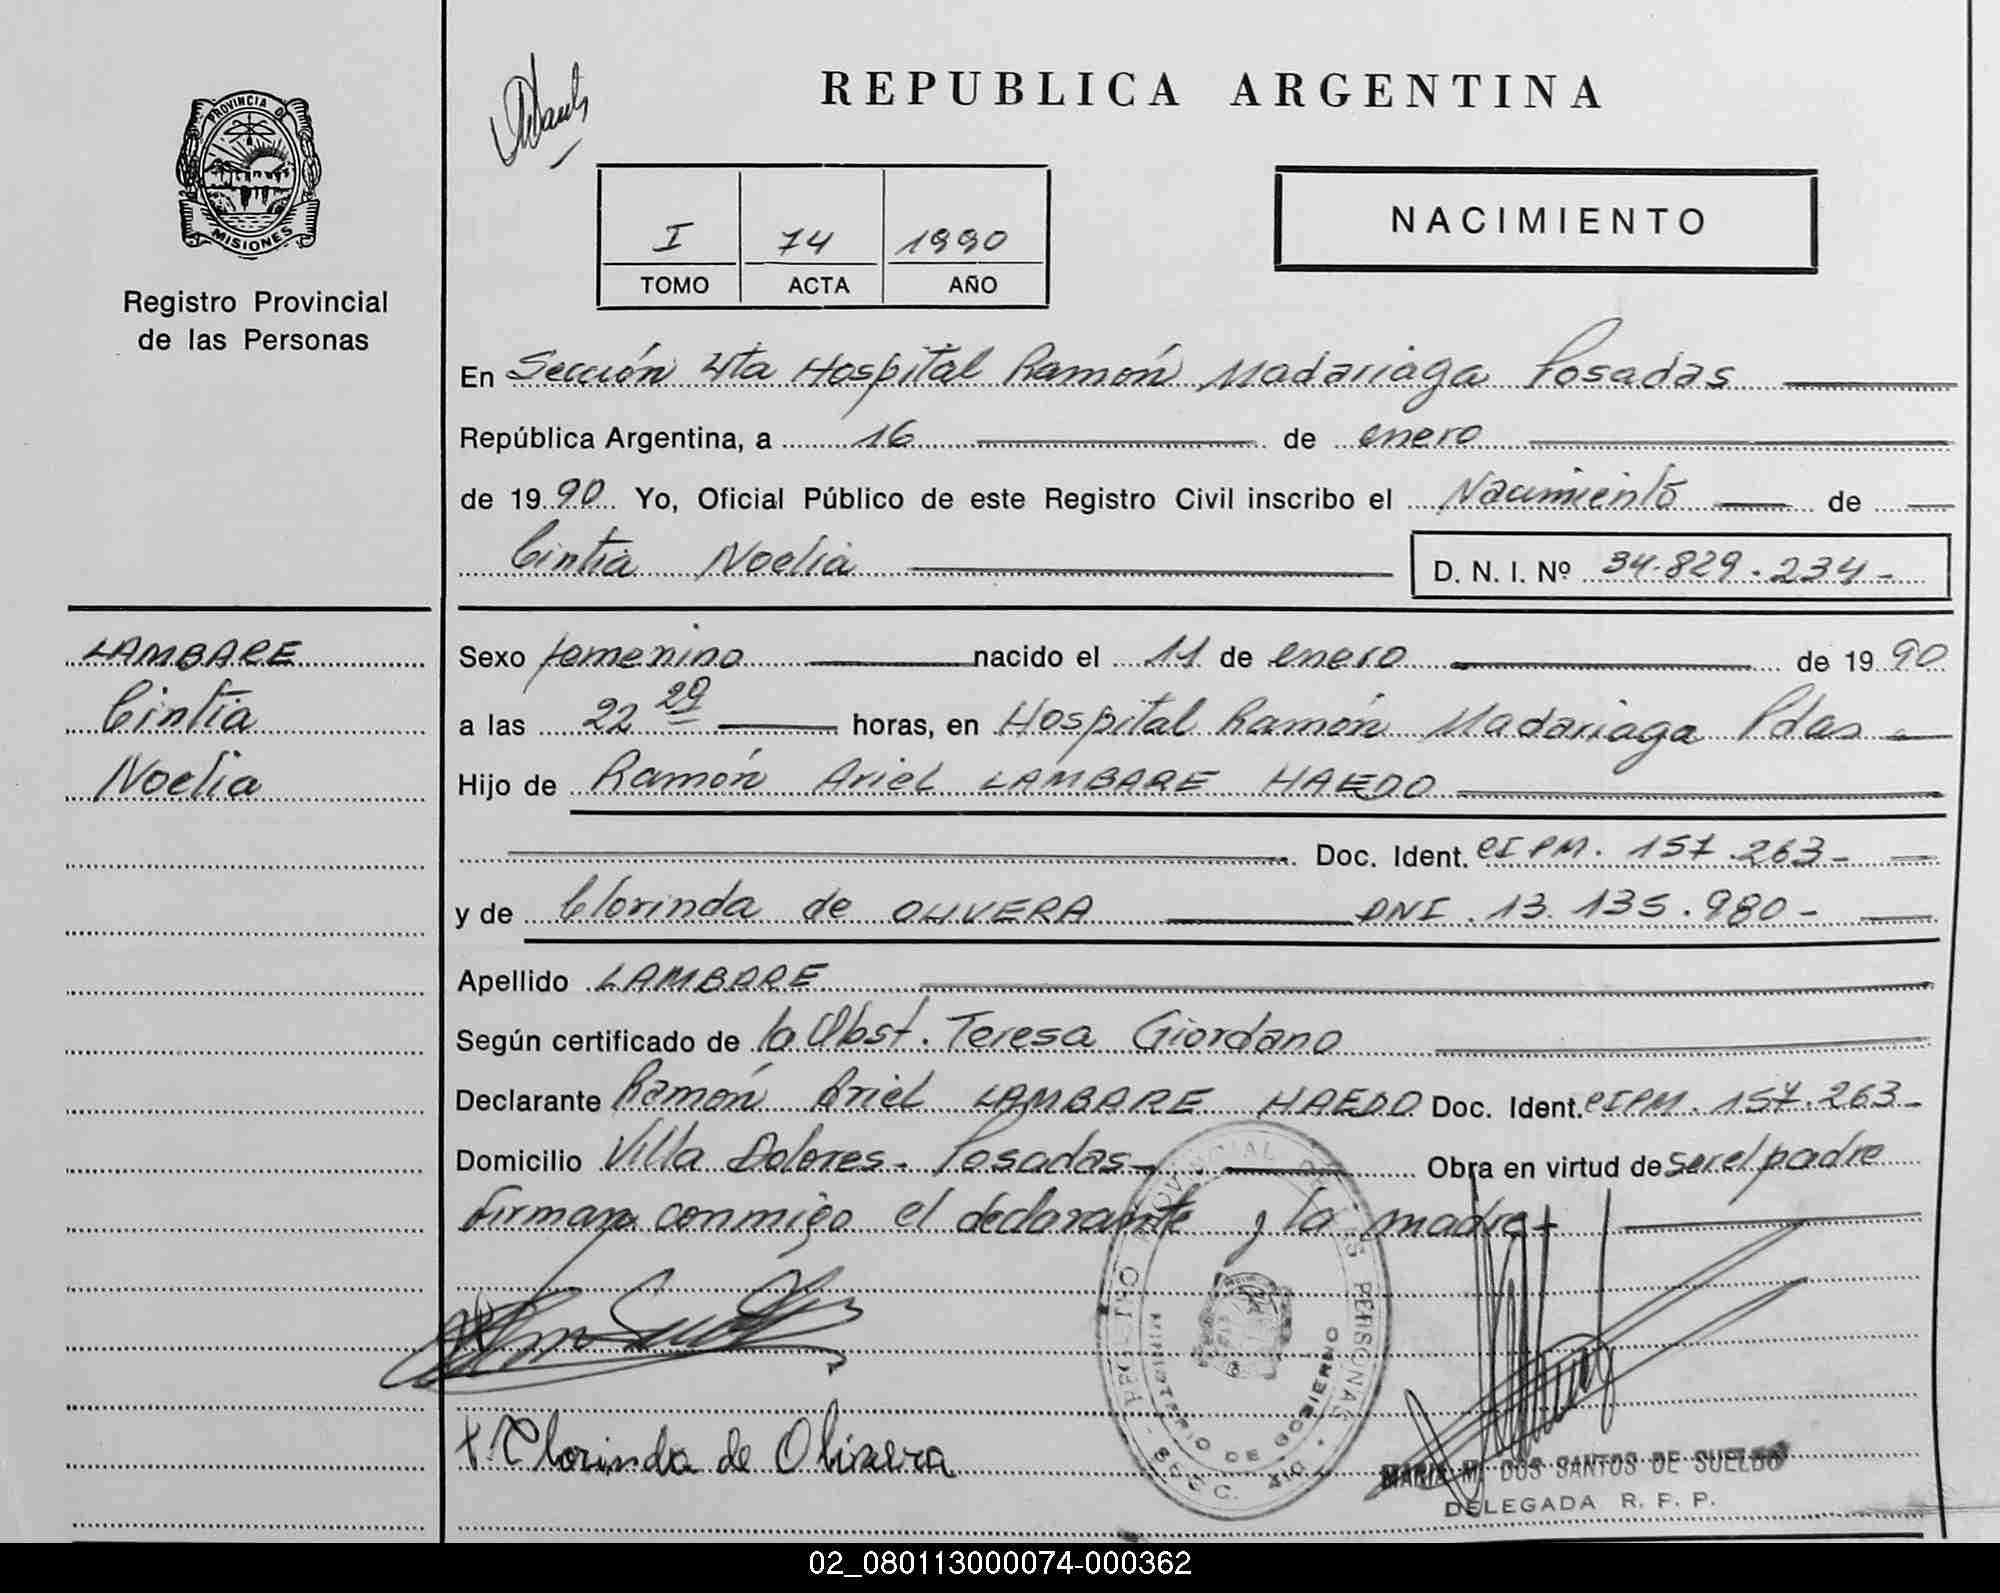 REPUBLICA ARGENTINA
PROVINCIA DE
MISIONES
Registro Provincial
de las Personas
I 74 1990
TOMO ACTA AÑO
NACIMIENTO
En Sección 4ta Hospital Ramón Madariaga Posadas
República Argentina, a 16 de enero
de 1990 Yo, Oficial Público de este Registro Civil inscribo el Nacimiento de
Cintia Noelia D. N. I. Nº 34.829.234-
LAMBARE
Cintia
Noelia
Sexo femenino nacido el 11 de enero de 1990
a las 22 29 horas, en Hospital Ramón Madariaga Pdas
Hijo de Ramón Ariel LAMBARE HAEDO
Doc. Ident. CIPM. 157.263-
y de Clorinda de OLIVERA DNI. 13.135.980-
Apellido LAMBARE
Según certificado de la Obst. Teresa Giordano
Declarante Ramón Ariel LAMBARE HAEDO Doc. Ident. CIPM. 157.263-
Domicilio Villa Dolores- Posadas- Obra en virtud de ser el padre
firman conmigo el declarante y la madre-
Clorinda de Olivera
REGISTRO PROVINCIAL DE LAS PERSONAS
MINISTERIO DE GOBIERNO
MARIA M. DOS SANTOS DE SUELDO
DELEGADA R. P. P.
02_080113000074-000362